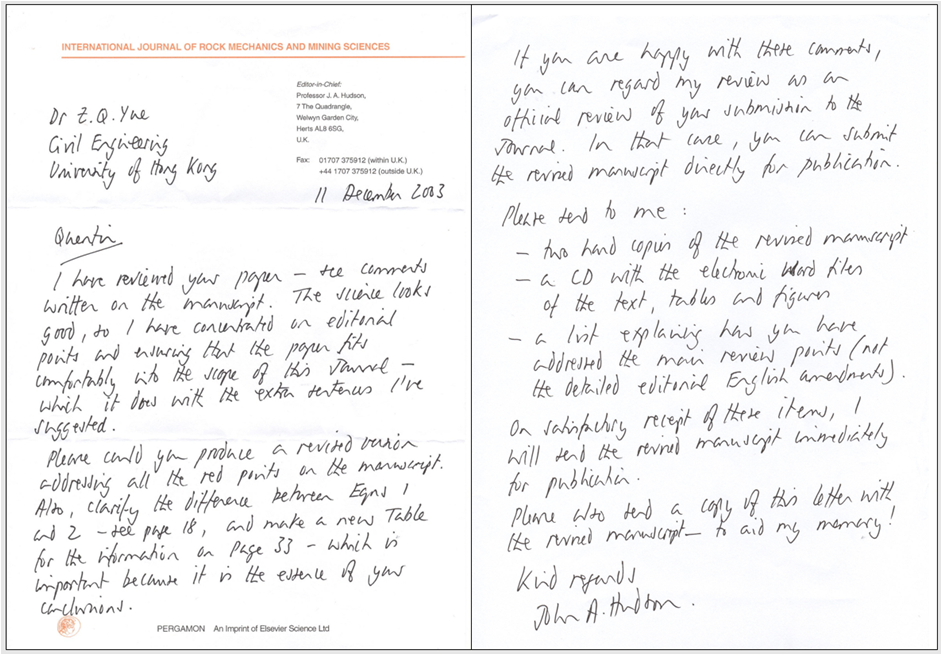 INTERNATIONAL JOURNAL OF ROCK MECHANICS AND MINING SCIENCES
Editor-in-Chief:
Professor J. A. Hudson,
7 The Quadrangle,
Welwyn Garden City,
Herts AL8 6SG,
U.K.
Fax: 01707 375912 (within U.K.)
+44 1707 375912 (outside U.K.)
Dr Z.Q. Yue
Civil Engineering
University of Hong Kong
11 December 2003
Quentin
I have reviewed your paper – see comments
written on the manuscript. The science looks
good, so I have concentrated on editorial
points and ensuring that the paper fits
comfortably into the scope of this Journal –
which it does with the extra sentences I've
suggested.
Please could you produce a revised version
addressing all the red points on the manuscript.
Also, clarify the difference between Eqns 1
and 2 – see page 18, and make a new Table
for the information on page 33 – which is
important because it is the essence of your
conclusions.
PERGAMON An Imprint of Elsevier Science Ltd
If you are happy with these comments,
you can regard my review as an
official review of your submission to the
Journal. In that case, you can submit
the revised manuscript directly for publication.
Please send to me :
– two hard copies of the revised manuscript
– a CD with the electronic Word files
of the text, tables and figures
– a list explaining how you have
addressed the main review points (not
the detailed editorial English amendments).
On satisfactory receipt of these items, I
will send the revised manuscript immediately
for publication.
Please also send a copy of this letter with
the revised manuscript – to aid my memory!
Kind regards
John A. Hudson.